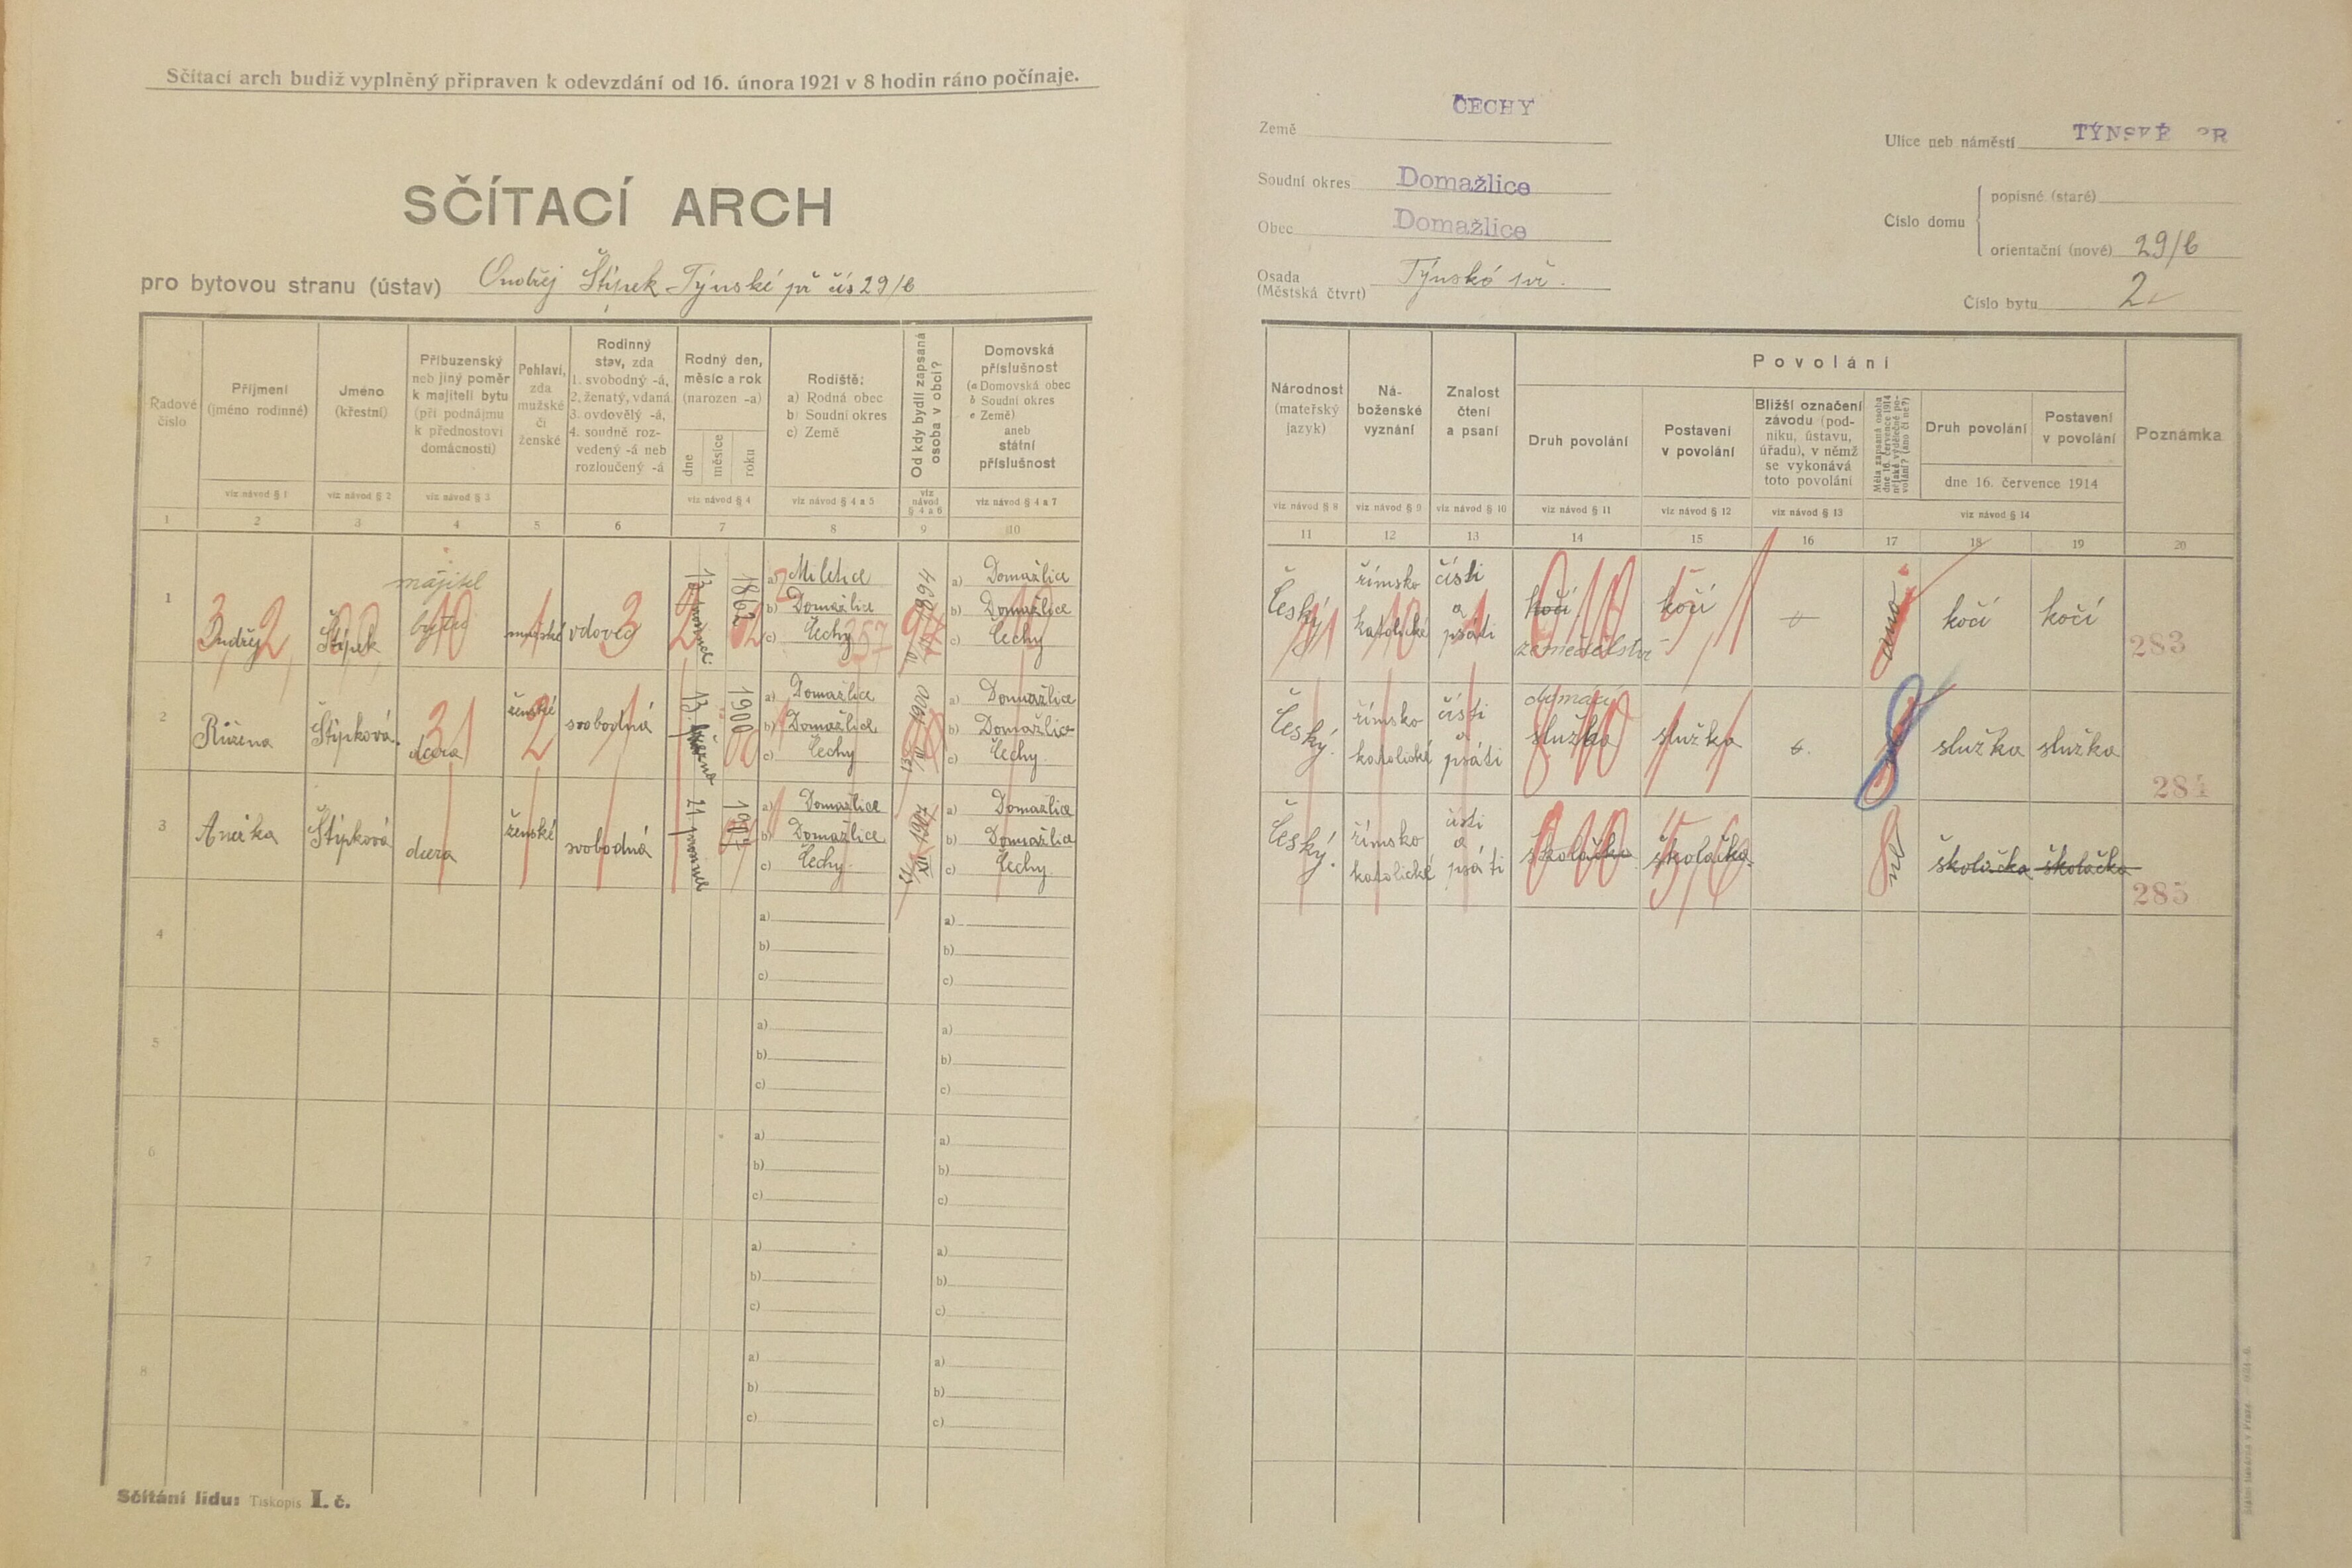 Sčítací arch budiž vyplněný připraven k odevzdání od 16. února 1921 v 8 hodin ráno počínaje.
SČÍTACÍ ARCH
pro bytovou stranu (ústav) Ondřej Štípek Týnské př čís 29/6
Země ČECHY
Soudní okres Domažlice
Obec Domažlice
Osada (Městská čtvrt) Týnské
Ulice neb náměstí TÝNSKÉ PR
Číslo domu
popisné (staré)
orientační (nové) 29/6
Číslo bytu 2
Řadové číslo
Příjmení (jméno rodinné)
Jméno (křestní)
Příbuzenský neb jiný poměr k majiteli bytu (při podnájmu k přednostovi domácnosti)
Pohlaví, zda mužské či ženské
Rodinný stav, zda 1. svobodný -á, 2. ženatý, vdaná, 3. ovdovělý -á, 4. soudně rozvedený -á neb rozloučený -á
Rodný den, měsíc a rok (narozen -a)
dne měsíce roku
Rodiště: a) Rodná obec b) Soudní okres c) Země
Od kdy bydlí zapsaná osoba v obci?
Domovská příslušnost (a Domovská obec b Soudní okres c Země) aneb státní příslušnost
viz návod § 1 viz návod § 2 viz návod § 3 viz návod § 4 viz návod § 4 a 5 viz návod § 4 a 6 viz návod § 4 a 7
1 2 3 4 5 6 7 8 9 10
Národnost (mateřský jazyk)
Náboženské vyznání
Znalost čtení a psaní
Povolání
Druh povolání
Postavení v povolání
Bližší označení závodu (podniku, ústavu, úřadu), v němž se vykonává toto povolání
Měla zapsaná osoba dne 16. července 1914 nějaké výdělečné povolání? (ano či ne?)
Druh povolání
Postavení v povolání
dne 16. července 1914
Poznámka
viz návod § 8 viz návod § 9 viz návod § 10 viz návod § 11 viz návod § 12 viz návod § 13 viz návod § 14
11 12 13 14 15 16 17 18 19 20
1 Ondřej Štípek majitel bytu mužské vdovec 1862
a) Miletice
b) Domažlice
c) Čechy
1894
a) Domažlice
b) Domažlice
c) Čechy
Český římsko katolické čísti a psáti kočí zemědělství kočí ano kočí kočí 283
2 Růžena Štípková dcera ženské svobodná 13. března 1900
a) Domažlice
b) Domažlice
c) Čechy
1900
a) Domažlice
b) Domažlice
c) Čechy
Český. římsko katolické čísti a psáti domácí služka služka služka služka 284
3 Anežka Štípková dcera ženské svobodná 21 prosince 1907
a) Domažlice
b) Domažlice
c) Čechy
XII 1907
a) Domažlice
b) Domažlice
c) Čechy
Český. římsko katolické čísti a psáti školačka školačka ne školačka školačka 285
4 a) b) c) a) b) c)
5 a) b) c) a) b) c)
6 a) b) c) a) b) c)
7 a) b) c) a) b) c)
8 a) b) c) a) b) c)
Sčítání lidu: Tiskopis I. č.